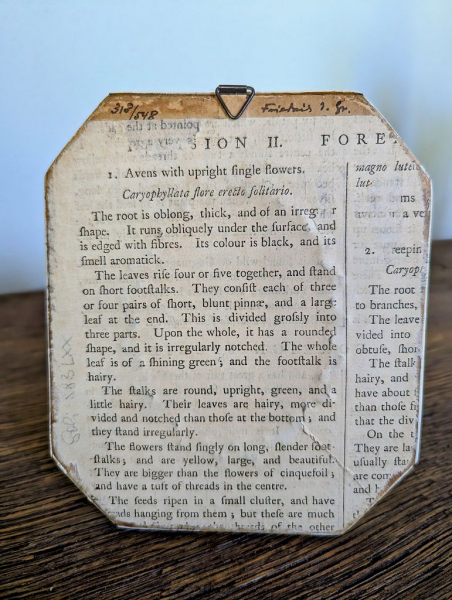 318/548
pointed at the
SION II. FORE
1. Avens with upright ſingle flowers.
Caryophyllata flore erecto ſolitario.
The root is oblong, thick, and of an
ſhape. It runs obliquely under the ſurface, and
is edged with fibres. Its colour is black, and its
ſmell aromatick.
The leaves riſe four or five together, and ſtand
on ſhort footſtalks. They conſiſt each of three
or four pairs of ſhort, blunt pinnæ, and a large
leaf at the end. This is divided groſsly into
three parts. Upon the whole, it has a rounded
ſhape, and it is irregularly notched. The whole
leaf is of a ſhining green; and the footſtalk is
hairy.
The ſtalks are round, upright, green, and a
little hairy. Their leaves are hairy, more di-
vided and notched than thoſe at the bottom; and
they ſtand irregularly.
The flowers ſtand ſingly on long, ſlender foot-
ſtalks; and are yellow, large, and beautiful.
They are bigger than the flowers of cinquefoil;
and have a tuft of threads in the centre.
The ſeeds ripen in a ſmall cluſter, and have
hanging from them; but theſe are much
of the other
magno
lut
ms
a ve
2.
Caryop
The root
to branches,
The leave
vided into
obtuſe, ſhor
The ſtalk
hairy, and
have about
than thoſe
that the div
On the
They are la
uſually ſta
are com
and